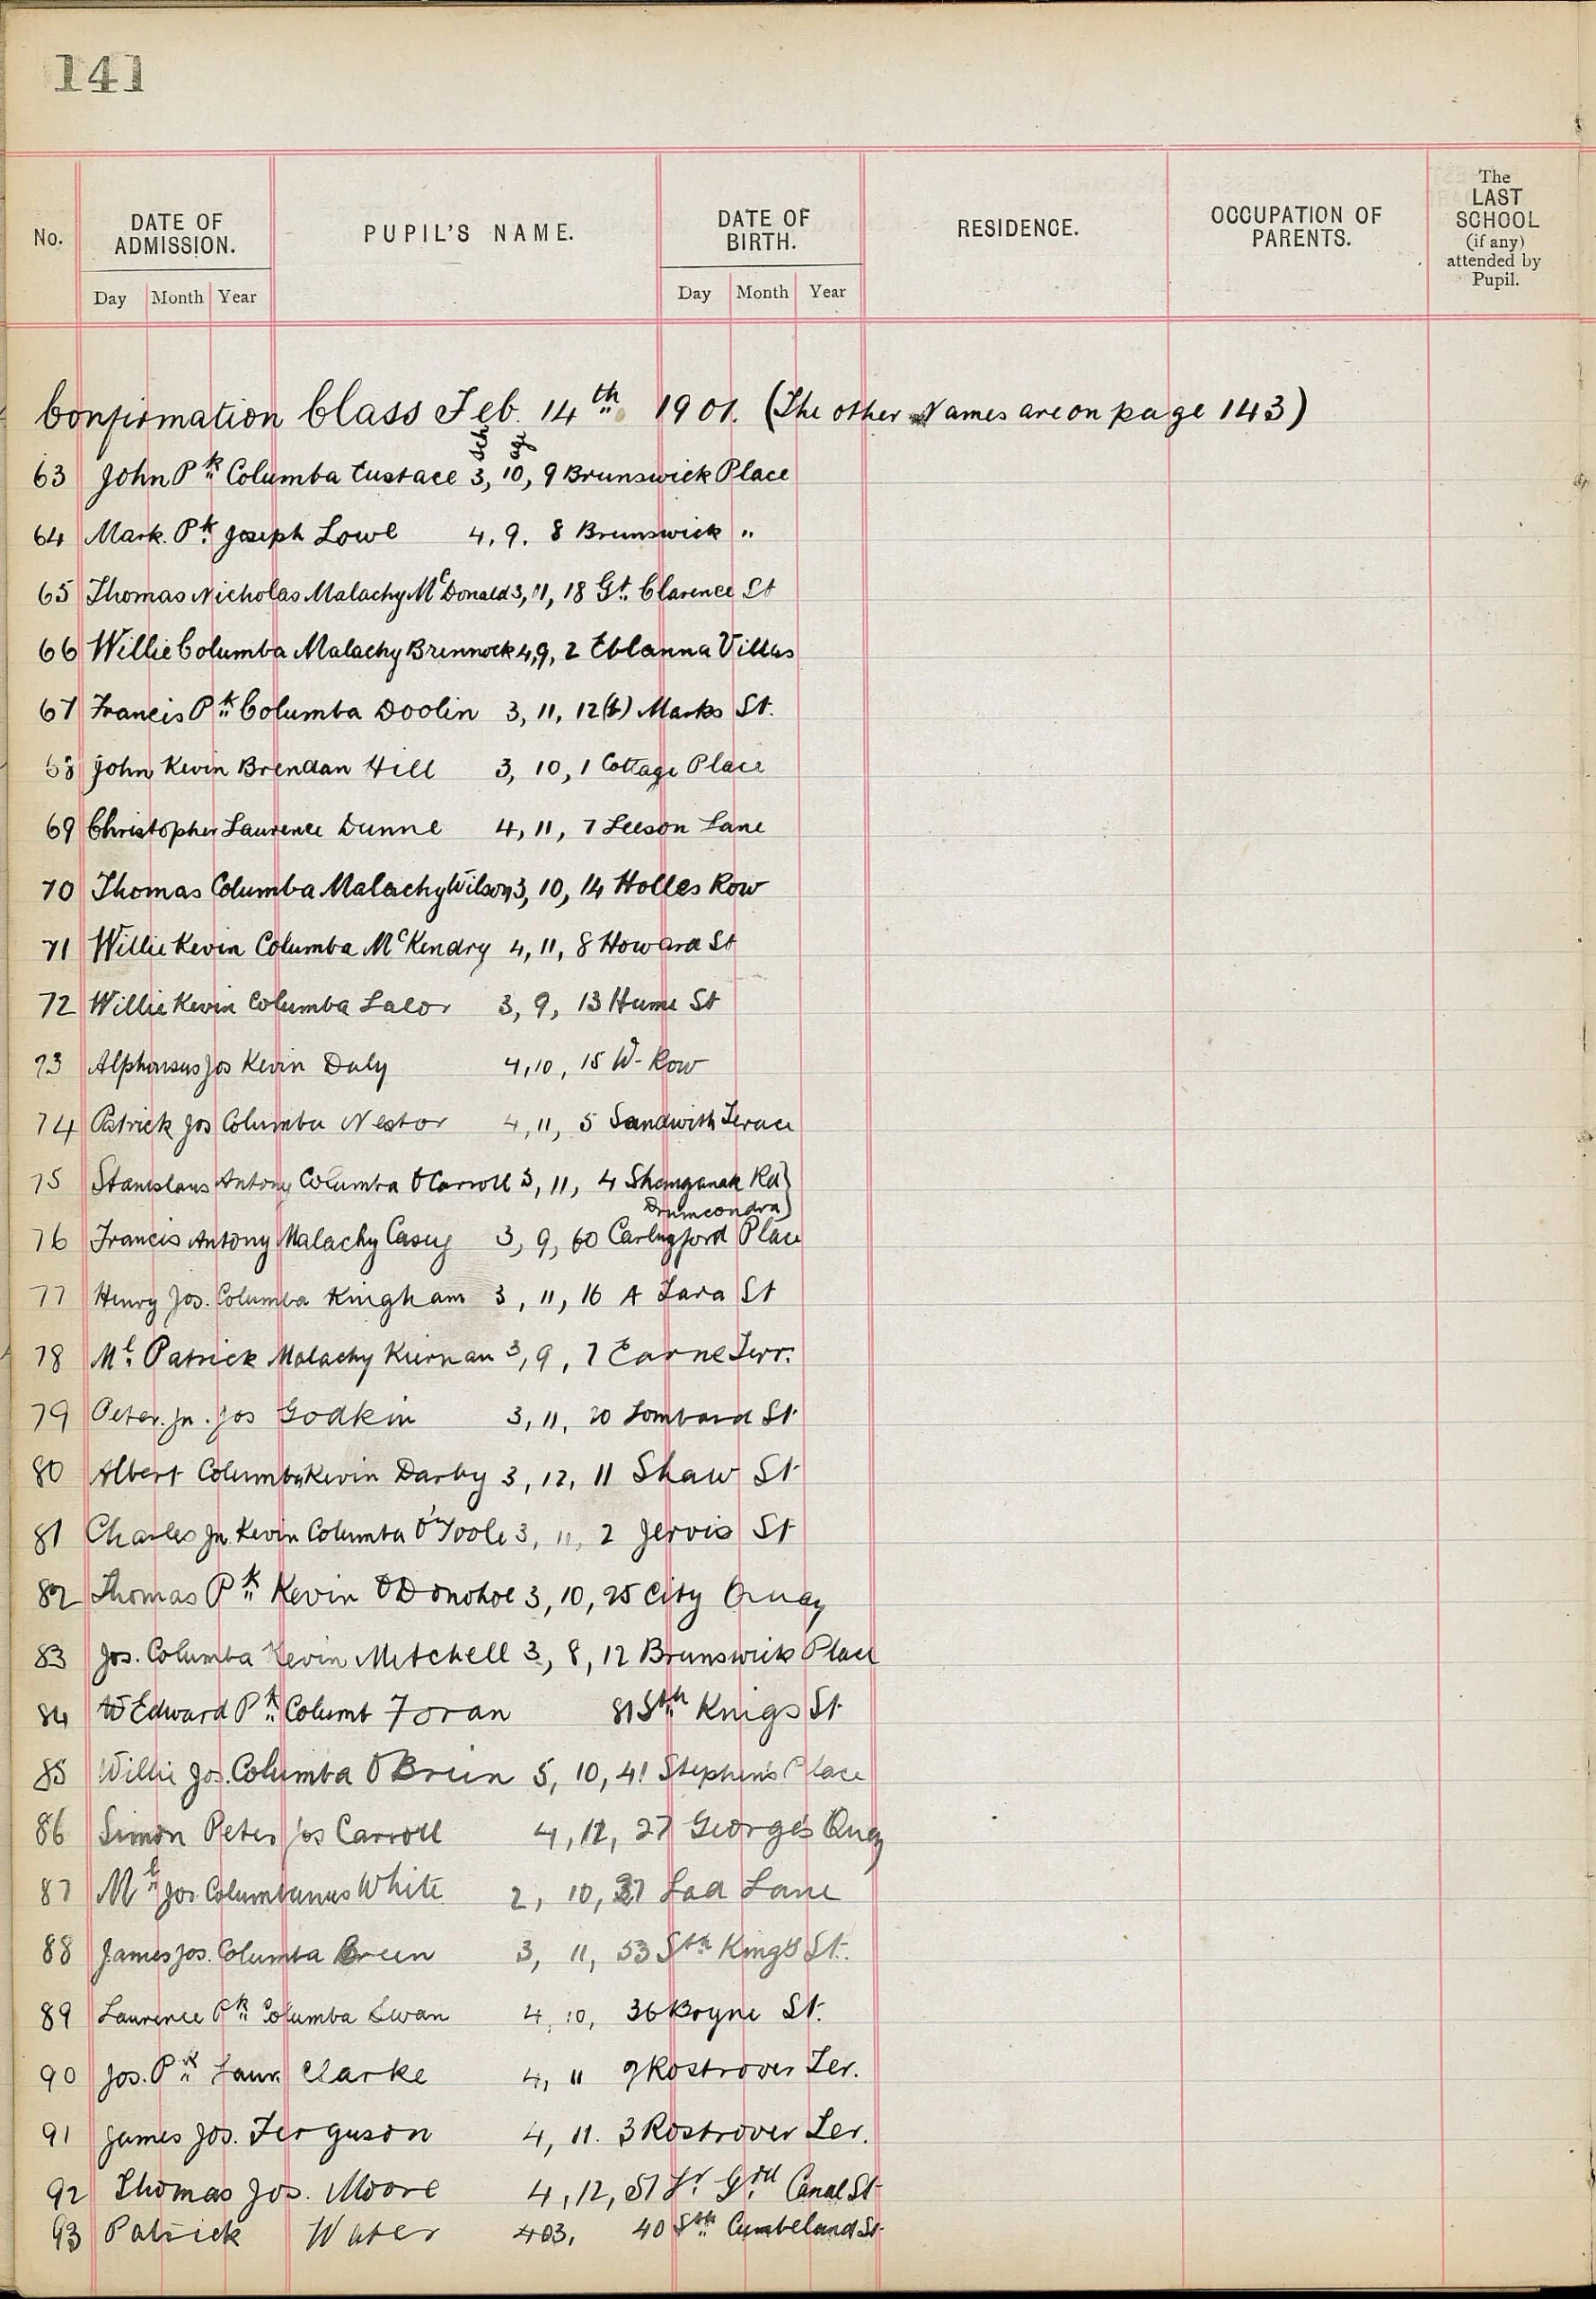 141
No.
DATE OF ADMISSION.
Day Month Year
PUPIL'S NAME.
DATE OF BIRTH.
Day Month Year
RESIDENCE.
OCCUPATION OF PARENTS.
The LAST SCHOOL (if any) attended by Pupil.
Confirmation Class Feb. 14th 1901. (The other Names are on page 143)
Sch Age
63 John Pk Columba Eustace 3, 10, 9 Brunswick Place
64 Mark. Pk Joseph Lowe 4, 9. 8 Brunswick "
65 Thomas Nicholas Malachy McDonald 3, 11, 18 Gt. Clarence St
66 Willie Columba Malachy Brennock 4,9, 2 Eblanna Villas
67 Francis Pk Columba Doolin 3, 11, 12(b) Marks St.
68 John Kevin Brendan Hill 3, 10, 1 Cottage Place
69 Christopher Laurence Dunne 4, 11, 7 Leeson Lane
70 Thomas Columba Malachy Wilson 3, 10, 14 Holles Row
71 Willie Kevin Columba McKendry 4, 11, 8 Howard St
72 Willie Kevin Columba Lalor 3, 9, 13 Hume St
73 Alphonsus Jos Kevin Daly 4, 10, 15 W- Row
74 Patrick Jos Columba Nestor 4, 11, 5 Sandwith Terace
75 Stanislaus Antony Columba O'Carroll 3, 11, 4 Shanganah Rd)
Drumcondra)
76 Francis Antony Malachy Casey 3, 9, 60 Carlingford Place
77 Henry Jos. Columba Kingham 3, 11, 16 A Tara St
78 Ml. Patrick Malachy Kiernan 3, 9, 7 Earne Terr.
79 Peter. Jn. Jos Godkin 3, 11, 20 Lombard St.
80 Albert Columba Kevin Darby 3, 12, 11 Shaw St
81 Charles Jn. Kevin Columba O'Toole 3, 11, 2 Jervis St
82 Thomas Pk Kevin O'Donohoe 3, 10, 25 City Quay
83 Jos. Columba Kevin Mitchell 3, 8, 12 Brunswick Place
84 Edward Pk Columb Foran 81 Sth Kings St
85 Willie Jos. Columba O'Brien 5, 10, 41 Stephen's Place
86 Simon Peter Jos Carroll 4, 12, 27 George's Quay
87 Ml Jos. Columbanus White 2, 10, 37 Lad Lane
88 James Jos. Columba Breen 3, 11, 53 Sth King's St.
89 Laurence Pk Columba Swan 4, 10, 36 Boyne St.
90 Jos. Pk Laur. Clarke 4, 11 9 Rostrover Ter.
91 James Jos. Ferguson 4, 11. 3 Rostrover Ter.
92 Thomas Jos. Moore 4, 12, 51 Lr. Grd Canal St
93 Patrick Water 40 Sth Cumbeland St